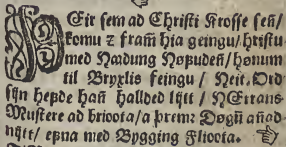 ÞEir sem ad Christi Krosse señ/
komu z framm hia geingu/ hristu
med Hædung Høfuden/ hønum
til Bryxlis feingu / Neit. Ord
sijn hefde hañ halldед lijtt / Mustere ad brioota/ a þremr Døgũ añad
nijtt/ efna med Bygging flioota.